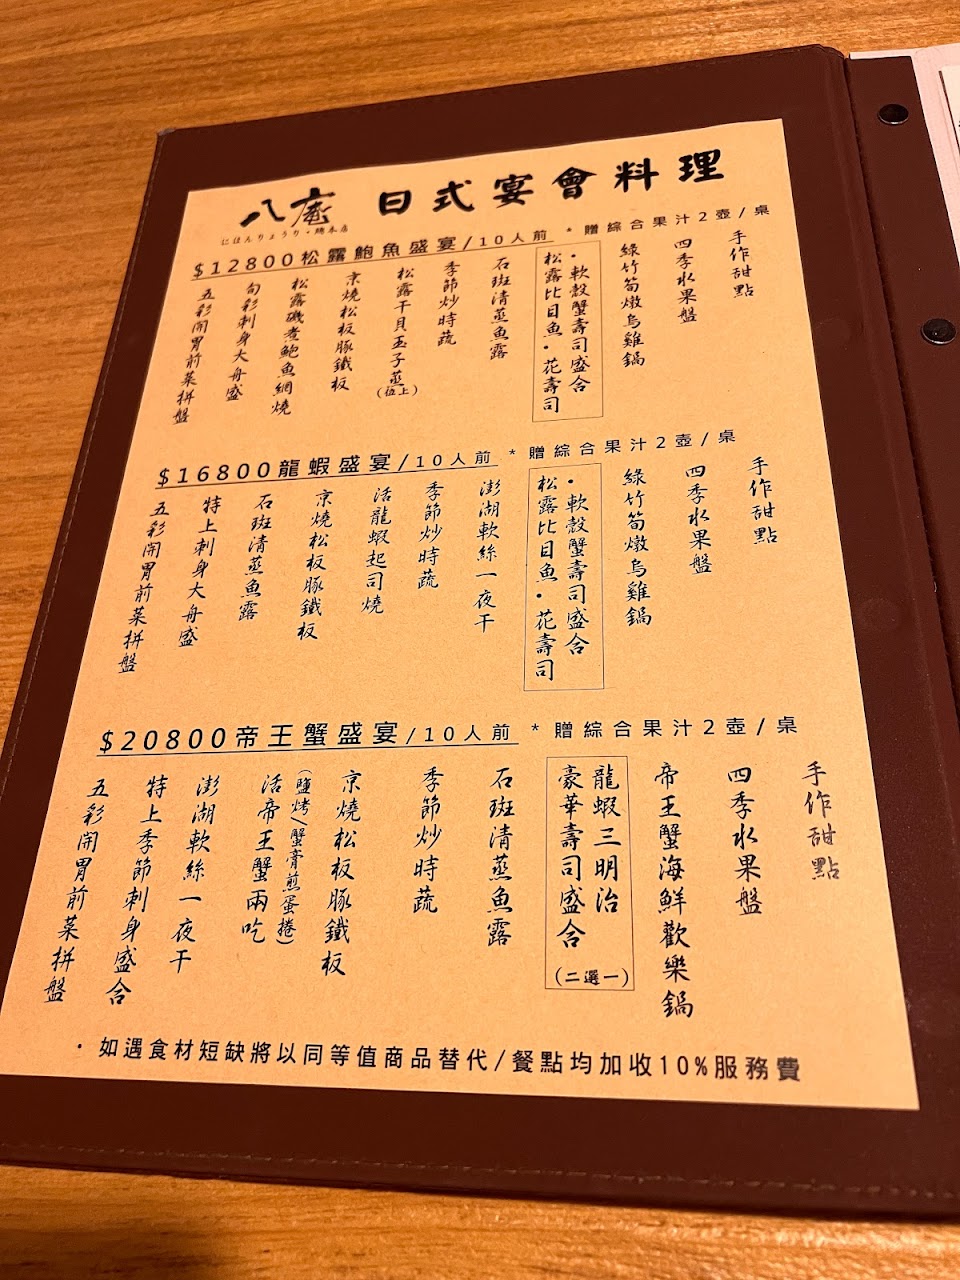 八庵 日式宴會料理
にほんりょうり・總本店
$12800松露鮑魚盛宴/10人前 *贈綜合果汁2壺/桌
五彩開胃前菜拼盤
旬彩刺身大舟盛
松露磯煮鮑魚網燒
京燒松板豚鐵板
松露干貝玉子蒸(位上)
季節炒時蔬
石斑清蒸魚露
松露比目魚・花壽司
・軟殼蟹壽司盛合
綠竹筍燉烏雞鍋
四季水果盤
手作甜點
$16800龍蝦盛宴/10人前 *贈綜合果汁2壺/桌
五彩開胃前菜拼盤
特上刺身大舟盛
石斑清蒸魚露
京燒松板豚鐵板
活龍蝦起司燒
季節炒時蔬
澎湖軟絲一夜干
松露比目魚・花壽司
・軟殼蟹壽司盛合
綠竹筍燉烏雞鍋
四季水果盤
手作甜點
$20800帝王蟹盛宴/10人前 *贈綜合果汁2壺/桌
五彩開胃前菜拼盤
特上季節刺身盛合
澎湖軟絲一夜干
活帝王蟹兩吃
(鹽烤/蟹膏煎蛋捲)
京燒松板豚鐵板
季節炒時蔬
石斑清蒸魚露
豪華壽司盛合
龍蝦三明治
(二選一)
帝王蟹海鮮歡樂鍋
四季水果盤
手作甜點
・如遇食材短缺將以同等值商品替代/餐點均加收10%服務費